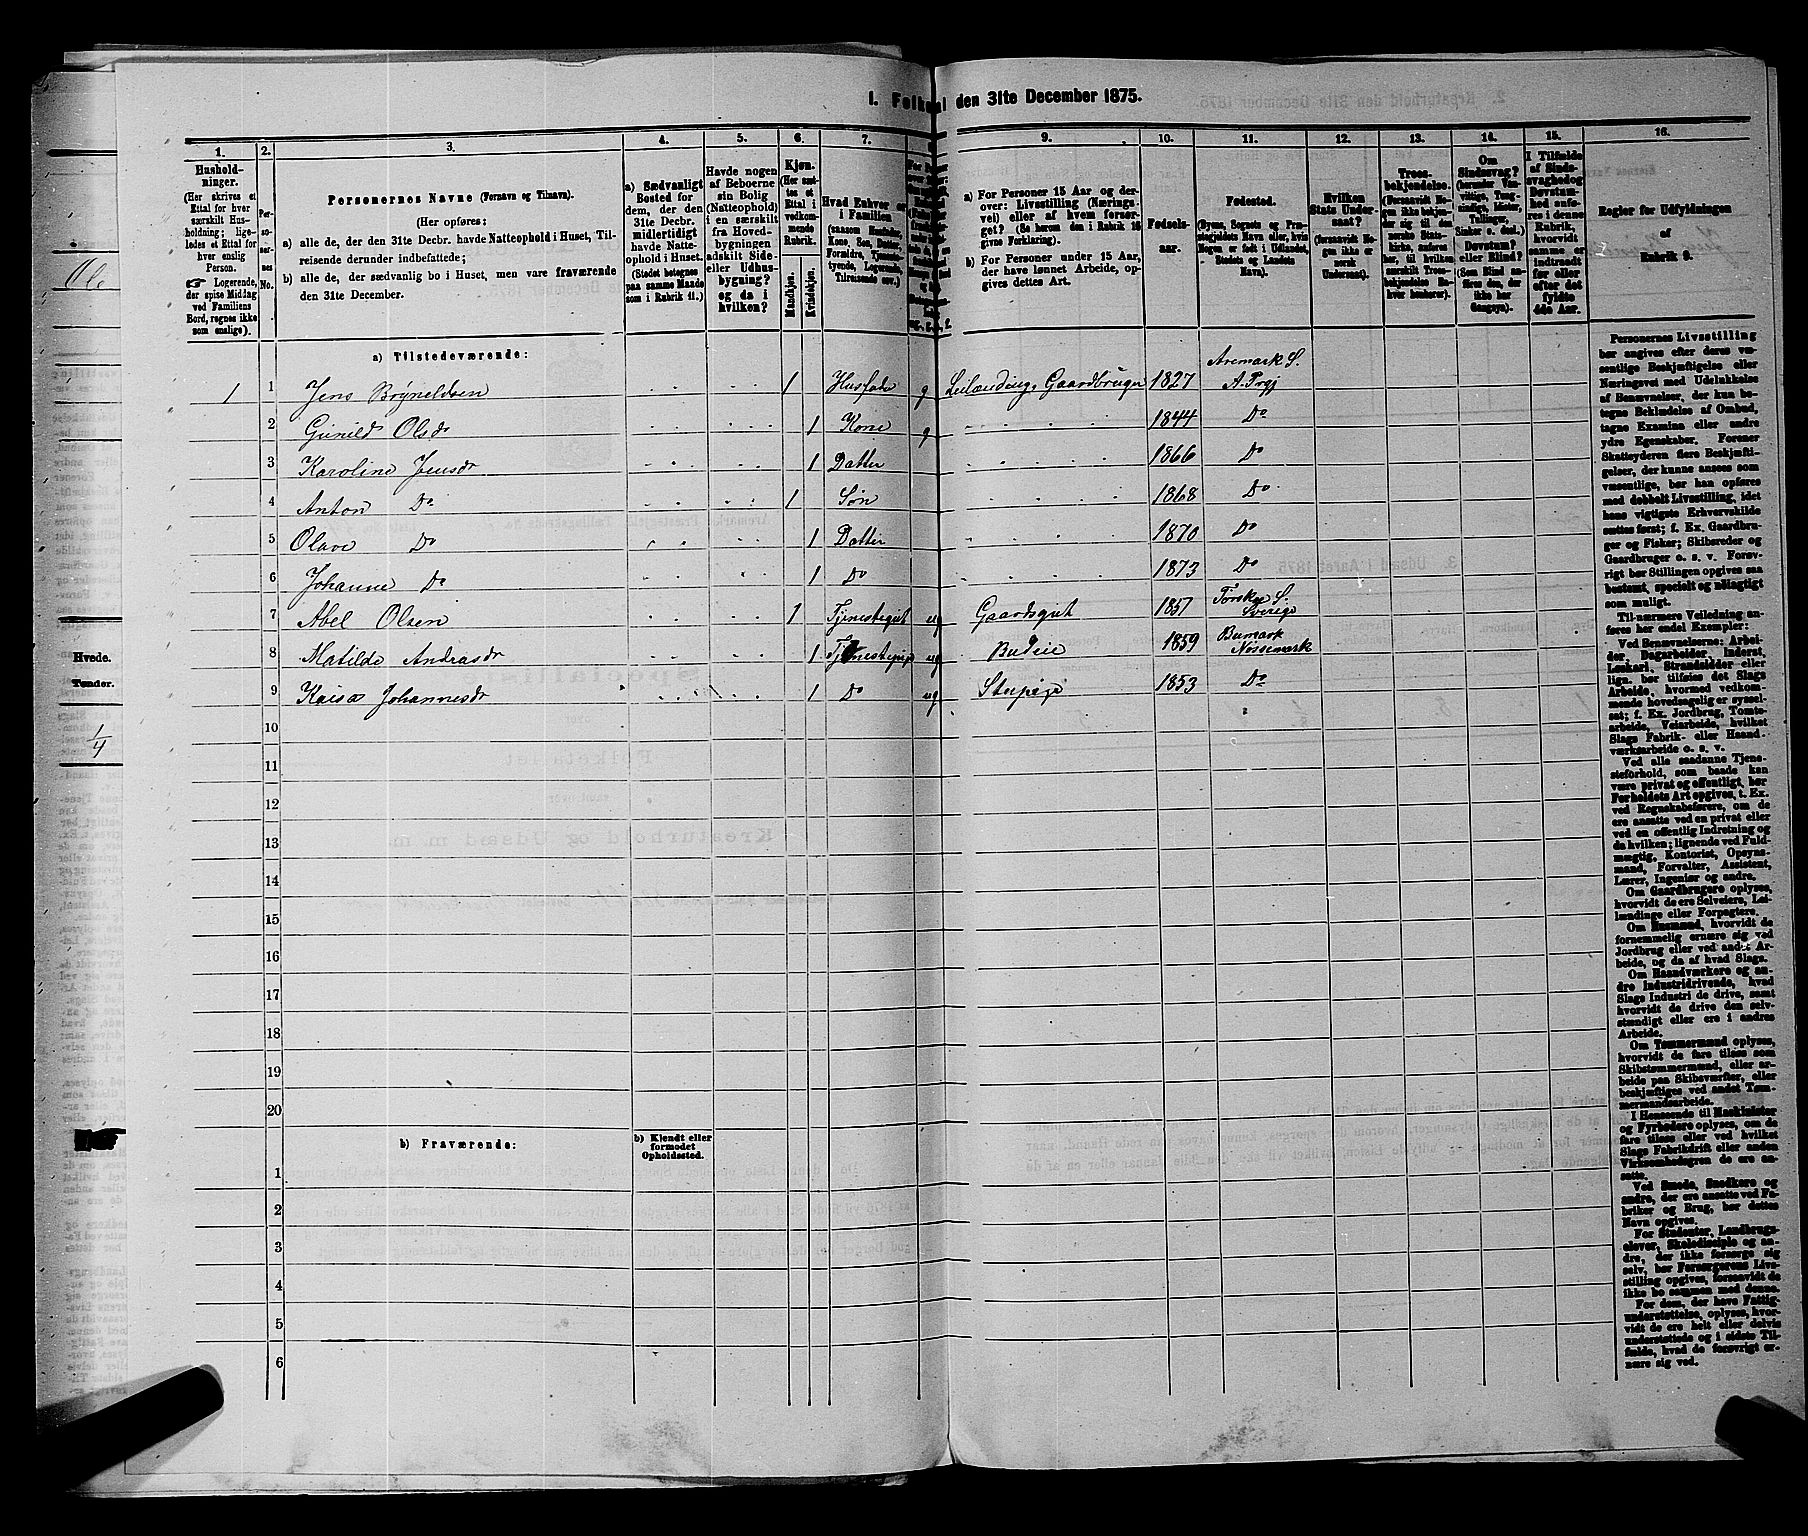 1. Folketal den 31te December 1875.
1. 2. 3. 4. 5. 6. 7. 8. 9. 10. 11. 12. 13. 14. 15. 16.
Hushold-
ninger.
(Her skrives et
Ettal for hver
særskilt Hus-
holdning; lige-
ledes et Ettal for
hver enslig
Person.
☞ Logerende,
der spise Middag
ved Familiens
Bord, regnes ikke
som enslige).
Per-
so-
ner-
nes
No.
Personernes Navne (Fornavn og Tilnavn).
(Her opføres:
a) alle de, der den 31te Decbr. havde Natteophold i Huset, Til-
reisende derunder indbefattede;
b) alle de, der sædvanlig bo i Huset, men vare fraværende
den 31te December.
a) Sædvanligt
Bosted for
dem, der den
31te Decbr.
midlertidigt
havde Natte-
ophold i Huset.
(Stedet betegnes
paa samme Maade
som i Rubrik 11.)
Havde nogen
af Beboerne
sin Bolig
(Natteophold)
i en særskilt
fra Hoved-
bygningen
adskilt Side-
eller Udhus-
bygning?
og da i
hvilken?
Kjøn.
(Her sæt-
tes et
Ettal i
vedkom-
mende
Rubrik.
Mandkjøn.
Kvindekjøn.
Hvad Enhver er
i Familien
(saasom Husfader,
Kone, Søn, Datter,
Forældre, Tjeneste-
tyende, Logerende,
Tilreisende osv.)
a) For Personer 15 Aar og der-
over: Livsstilling (Nærings-
vei) eller af hvem forsør-
get? (Se herom den i Rubrik 16
givne Forklaring).
b) For Personer under 15 Aar,
der have lønnet Arbeide, op-
gives dettes Art.
Fødsels-
aar.
Fødested.
(Byens, Sognets og Præ-
stegjeldets Navn eller, hvis
Nogen er født i Udlandet,
Stedets og Landets
Navn.)
Hvilken
Stats Under-
saat?
(forsaavidt No-
gen ikke er
norsk
Undersaat).
Troes-
bekjendelse.
(Forsaavidt No-
gen ikke bekjen-
der sig til den
norske Stats-
kirke, anføres
her, til hvilken
særskilt Troes-
bekjendelse Ved-
kommende henhører).
Om
Sindssvag?
Døvstum?
eller Blind?
I Tilfælde
af Sinds-
svaghed og
Døvstum-
hed anfø-
res i denne
Rubrik,
hvorvidt
samme er
indtraadt
før eller
efter det
fyldte
4de Aar.
Regler for Udfyldningen
af
Rubrik 9.
a) Tilstedeværende:
1 1 Jens Bryneldsen 1 Husfader g Leilænding, Gaardbruger 1827 Aremark S.
A. Prgj
2 Gunild Olsdr 1 Kone g 1844 Do
3 Karoline Jensdr 1 Datter 1866 Do
4 Anton Do 1 Søn 1868 Do
5 Olave Do 1 Datter 1870 Do
6 Johanne Do 1 Do 1873 Do
7 Abel Olsen 1 Tjenestegut ug Gaardsgut 1857 Torskog S.
Sverige
8 Matilde Andreasdr 1 Tjenestepige ug Budeie 1859 Bumark
Nossemark
9 Kaisa Johannesdr 1 Do ug Stupige 1853 Do
10
11
12
13
14
15
16
17
18
19
20
b) Fraværende:
b) Kjendt eller
formodet
Opholdssted.
1
2
3
4
5
6
Personernes Livsstilling
bør angives efter deres væ-
sentlige Beskjæftigelse eller
Næringsvei med Udelukkelse
af Benævnelser, der kun be-
tegne Beklædelse af Ombud,
tagne Examina eller andre
ydre Egenskaber. Forener
Skatteyderen flere Beskjæfti-
gelser, der kunne ansees som
væsentlige, bør han opføres
med dobbelt Livsstilling, idet
hans vigtigste Erhvervskilde
sættes først; f. Ex. Gaardbru-
ger og Fisker; Skibsreder og
Gaardbruger o. s. v. Forøv-
rigt bør Stillingen opgives saa
bestemt, specielt og nøiagtigt
som muligt.
Til nærmere Veiledning an-
føres her endel Exempler:
Ved Benævnelserne: Arbei-
der, Dagarbeider, Inderst,
Løskarl, Strandsidder eller
lign. bør tilføies det Slags
Arbeide, hvormed vedkom-
mende hovedsagelig er syssel-
sat; f. Ex. Jordbrug, Tomte-
arbeide, Veiarbeide, hvilket
Slags Fabrik- eller Haand-
værksarbeide o. s. v.
Ved alle saadanne Tjene-
steforhold, som baade kan
være privat og offentligt, bør
Forholdets Art opgives, f. Ex.
ved Regnskabsførere, om de
ere ansatte ved en privat eller
ved en offentlig Indretning og
da hvilken; lignende ved Fuld-
mægtig, Kontorist, Opsyns-
mand, Forvalter, Assistent,
Lærer, Ingeniør og andre.
Om Gaardbrugere oplyses,
hvorvidt de ere Selveiere, Lei-
lændinge eller Forpagtere.
Om Husmænd, hvorvidt de
fornemmelig ernære sig ved
Jordbrug eller ved andet Ar-
beide, og da af hvad Slags.
Om Haandværkere og an-
dre industridrivende, hvad
Slags Industri de drive, samt
hvorvidt de drive den selv-
stændigt eller ere i andres
Arbeide.
Om Tømmermænd oplyses,
hvorvidt de fare tilsøs som
Skibstømmermænd, eller ar-
beide paa Skibsværfter, eller
beskjæftiges ved andet Tøm-
mermandsarbeide.
I Henseende til Maskinister
og Fyrbødere oplyses, om de
fare tilsøs eller ved hvilket
Slags Fabrikdrift eller anden
Virksomhed de ere an-
satte.
Ved Smede, Snedkere og
andre, der ere ansatte ved Fa-
briker og Brug, bør dettes
Navn opgives.
For Studenter, Landbrugs-
elever, Skoledisciple og an-
dre, der ikke forsørge sig
selv, bør Forsørgerens Livs-
stilling opgives, forsaavidt de
ikke bo sammen med denne.
For dem, der have Fattig-
understøttelse, oplyses, hvor-
vidt de ere helt eller delvis
understøttede og i sidste Til-
fælde, hvad de forøvrigt er-
nære sig ved.
Ole
Hvede.
Tønder.
1/4